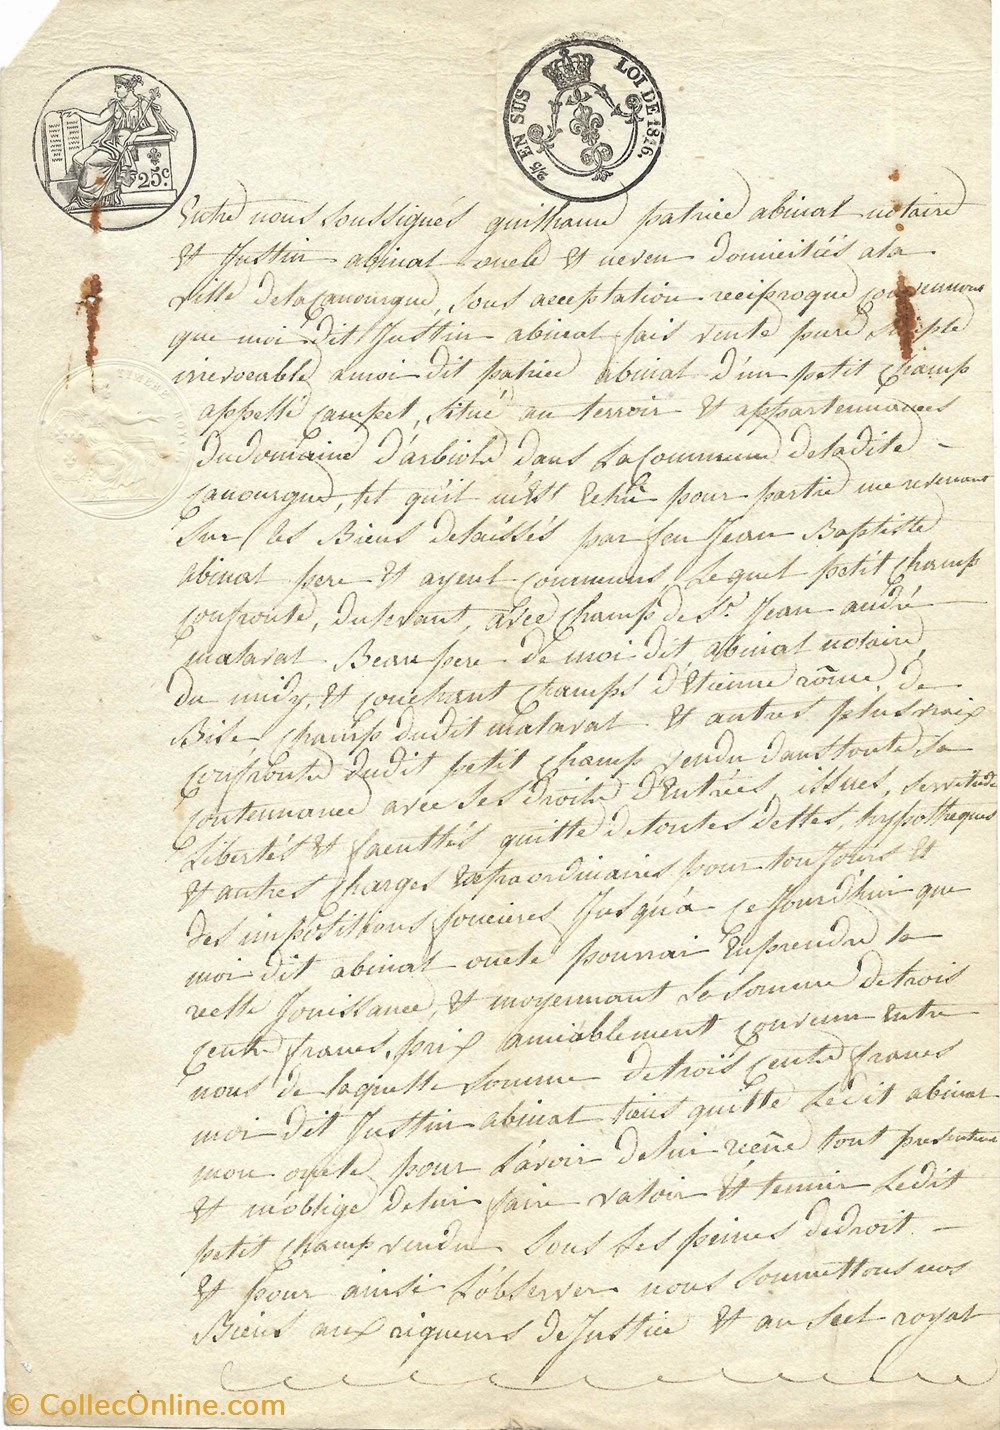 25c.
2/5 EN SUS
LOI DE 1816.
Entre nous soussignés guilhaume patrice abinal notaire
et Justin abinal oncle et neveu domiciliés a la
ville de la Canourgue, sous acceptation reciproque convenons
que moi dit Justin abinal fais vente pure simple
irrevocable a moi dit patrice abinal d'un petit champ
appellé campet, situé au terroir et appartennances
du domaine d'arbiole dans la Commune de la dite -
Canourgue, et qu'il m'est echû pour partie me revenant
sur les Biens delaissés par feu Jean Baptiste
abinal pere et ayeul communs, Lequel petit champ
confronte, du levant, avec champ de Sr. Jean andré
malaval Beaupere de moi dit abinal notaire,
du midy, et couchant champs d'Etienne rôme, de
Bise, champ dudit malaval et autres plus vraix
confronts dudit petit champ vendu dans toute sa
contennance avec ses droits d'Entrées, issues, servitude
Libertés et facultés quitte de toutes dettes, hypotheques
et autres charges extraordinaires pour toujours et
des impositions foncieres Jusqu'a ce jourd'hui que
moi dit abinal oncle pourrai En prendre la
reelle Jouissance, et moyennant la somme de trois
cents francs, prix amiablement convenu Entre
nous de laquelle somme de trois cents francs
moi dit Justin abinal tiens quitte Ledit abinal
mon oncle pour L'avoir de lui reçue tout presentement
et m'oblige de lui faire valoir et tenir Ledit
petit champ vendu sous les peines de droit. -
et pour ainsi L'observer nous soumettons nos
Biens aux rigueurs de Justice et au scel royal
© CollecOnline.com